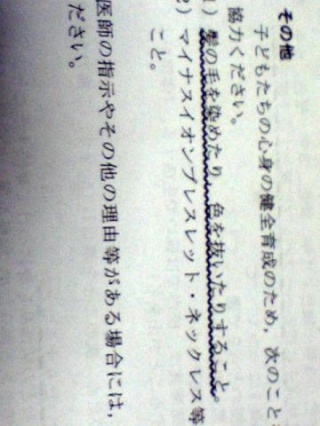 その他
子どもたちの心身の健全育成のため，次のこと
協力ください。
1）髪の毛を染めたり，色を抜いたりすること。
2）マイナスイオンブレスレット・ネックレス等
こと。
医師の指示やその他の理由等がある場合には，
ださい。